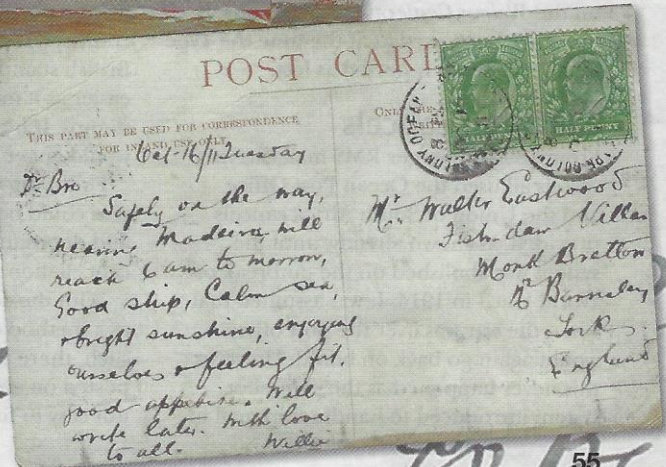 POST CARD
THIS PART MAY BE USED FOR CORRESPONDENCE
FOR INLAND USE ONLY
ONLY
HALFPENNY HALFPENNY
Oct-16/11 Tuesday
Dr Bro
Safely on the way,
nearing Madeira, will
reach 6 am to morrow,
Good ship, Calm sea,
& bright sunshine, enjoying
ourselves & feeling fit,
good appetise. Will
write later. With love
to all. Willie
Mr Walter Eastwood
Fish-dam Villas
Monk Bretton
Nr Barnsley
Yorks
England
55